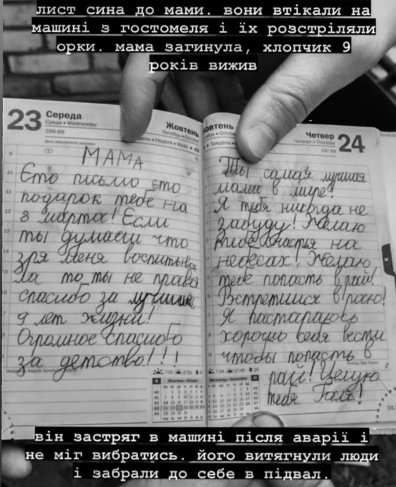 лист сина до мами. вони втікали на
машині з гостомеля і їх розстріляли
орки. мама загинула, хлопчик 9
років вижив
23 Середа
Середа • Wednesday
296-69
Жовтень
МАМА
Єто письмо єто
подарок тебе на
8 марта! Если
ты думаеш что
зря меня воспитывала
то ты не права
спасибо за лучшие
9 лет жизни!
Огромное спасибо
за детство!!!
Жовтень
Четвер 24
Ты самая лучшая
мама в мире!
Я тебя никогда не
забуду! Желаю
тебе счастья на
небесах! Желаю
тебе попасть в рай!
Встретимся в раю!
Я пастараюсь
хорошо себя вести
чтобы попасть в
рай! Целую
тебя
він застряг в машині після аварії і
не міг вибратись. його витягнули люди
і забрали до себе в підвал.